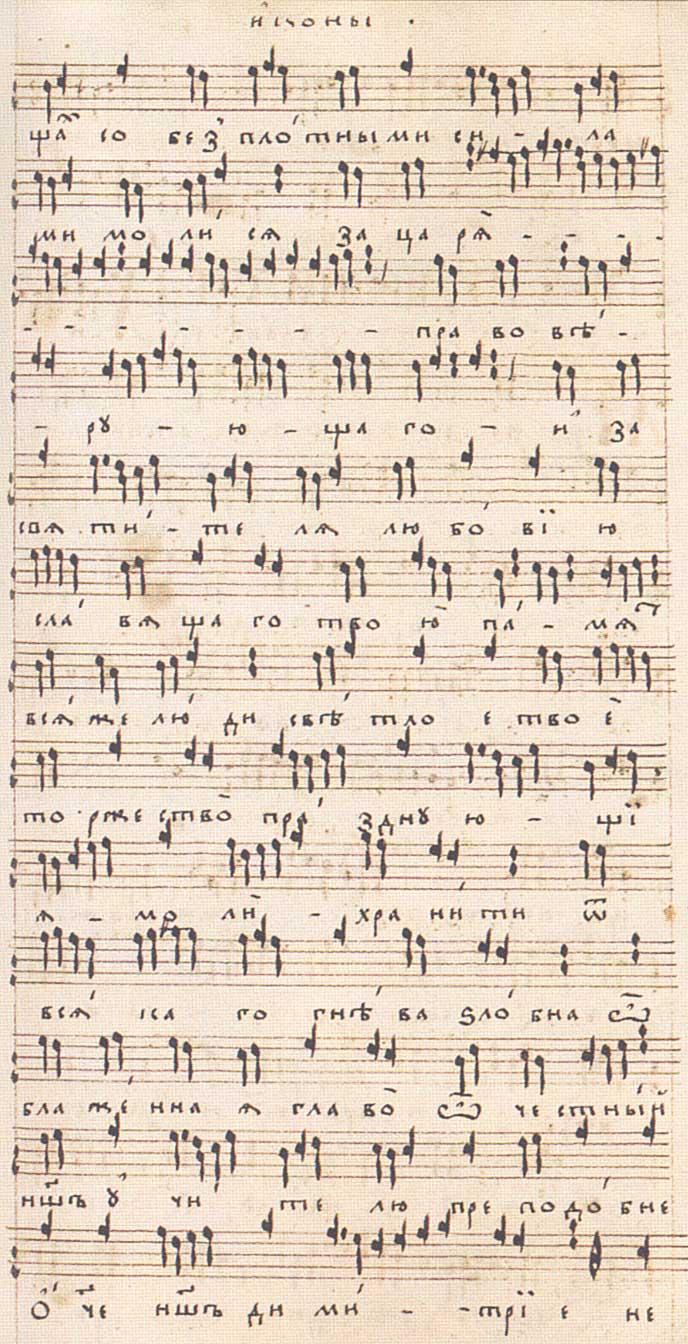 и҆коны .
ща̑ со без̾ пло́тными си - ла
ми моли́ сѧ за царѧ̀ - - - -
- - - - - - - - право вѣ́ -
- рꙋ - ю - ща го - и҆ за
свѧ ти́ - те лѧ лю бо́ вї ю
сла́ вѧ ща го тво ю̀ па́ - мѧ
всѧ́ же лю́ ди свѣ́ тло е тво ѐ
то рже ство̀ пра́ зднꙋ ю - щї
ѧ - мо лѝ - хра ни ти ѿ
всѧ́ ка го гнѣ́ ва ѕло́ бна ѽ
бла же́ нна ѧ гла во̀ ѽ че стны́й
нш҃ъ ꙋ҆ чи́ те лю пре подо́ бне
ѻ҆́ ч҃е нш҃ъ ди ми́ - - трї е не